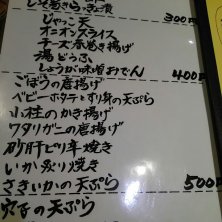 しそ巻きらっきょ漬
300円
じゃっこ天
オニオンスライス
チーズ春巻き揚げ
湯どうふ
しょうが味噌おでん
400円
ごぼうの唐揚げ
ベビーホタテとすり身の天ぷら
小柱のかき揚げ
ワタリガニの唐揚げ
砂肝ピリ辛焼き
いか炙り焼き
さきいかの天ぷら
500円
穴子の天ぷら